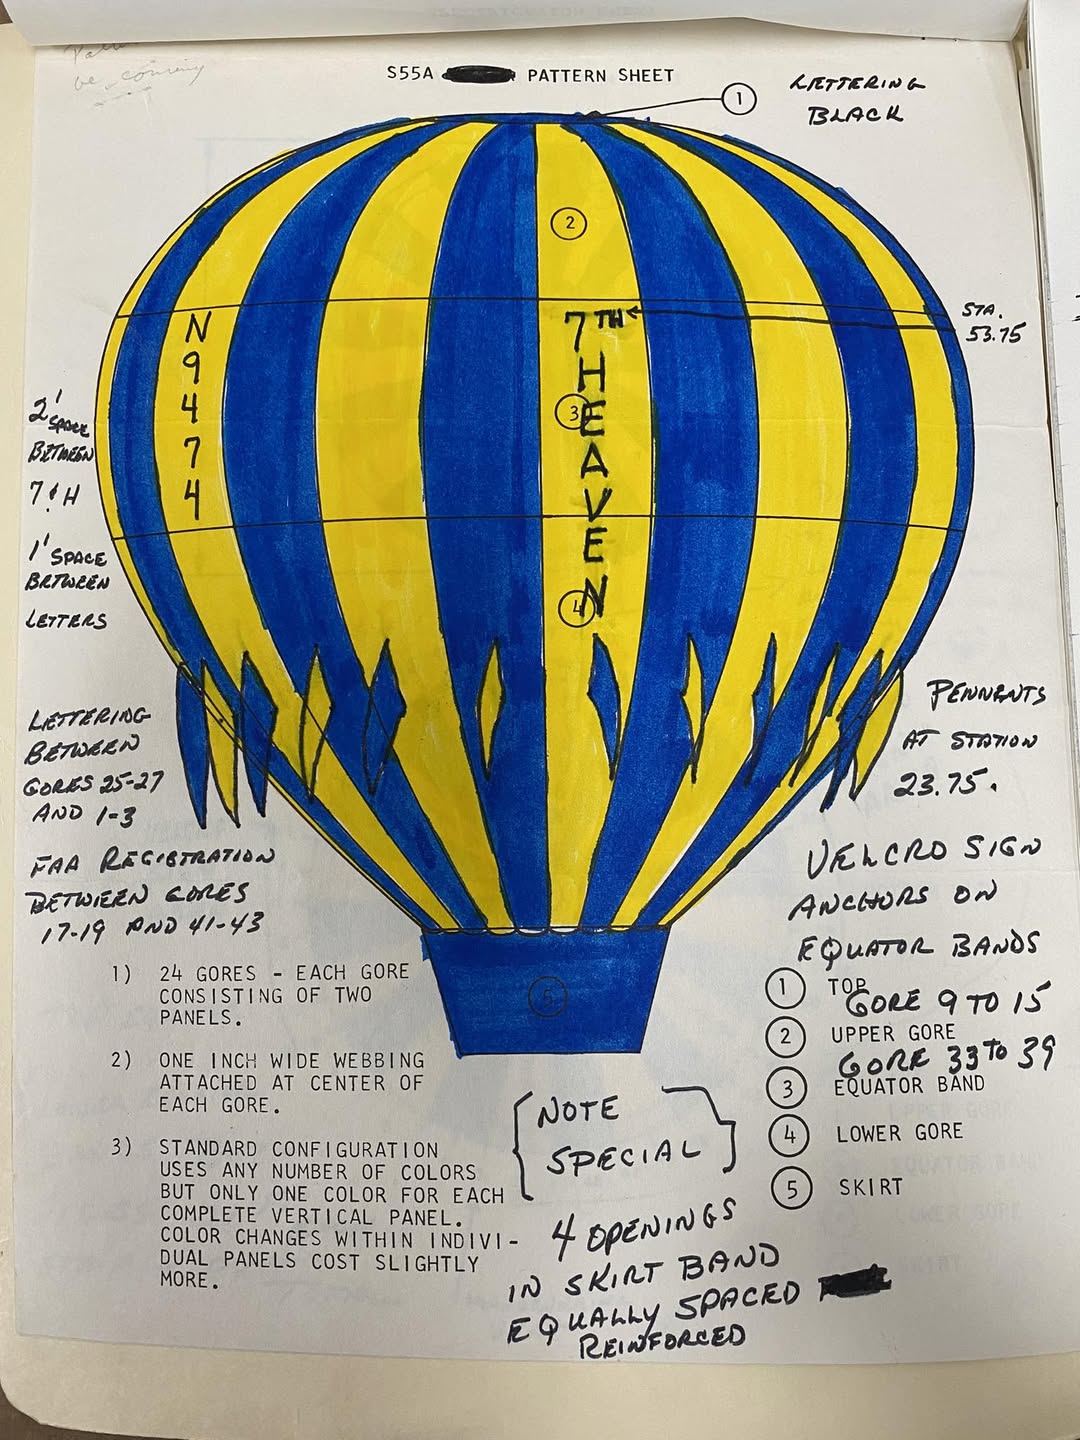 be coming
S55A PATTERN SHEET
1
LETTERING
BLACK
2
7TH
HEAVEN
N9474
3
4
STA.
53.75
2' SPACE
BETWEEN
7 & H
1' SPACE
BETWEEN
LETTERS
LETTERING
BETWEEN
GORES 25-27
AND 1-3
FAA REGISTRATION
BETWEEN GORES
17-19 AND 41-43
PENNENTS
AT STATION
23.75.
VELCRO SIGN
ANCHORS ON
EQUATOR BANDS
GORE 9 TO 15
GORE 33 TO 39
5
1) 24 GORES - EACH GORE
CONSISTING OF TWO
PANELS.
2) ONE INCH WIDE WEBBING
ATTACHED AT CENTER OF
EACH GORE.
3) STANDARD CONFIGURATION
USES ANY NUMBER OF COLORS
BUT ONLY ONE COLOR FOR EACH
COMPLETE VERTICAL PANEL.
COLOR CHANGES WITHIN INDIVI-
DUAL PANELS COST SLIGHTLY
MORE.
1 TOP
2 UPPER GORE
3 EQUATOR BAND
4 LOWER GORE
5 SKIRT
NOTE
SPECIAL
4 OPENINGS
IN SKIRT BAND
EQUALLY SPACED
REINFORCED